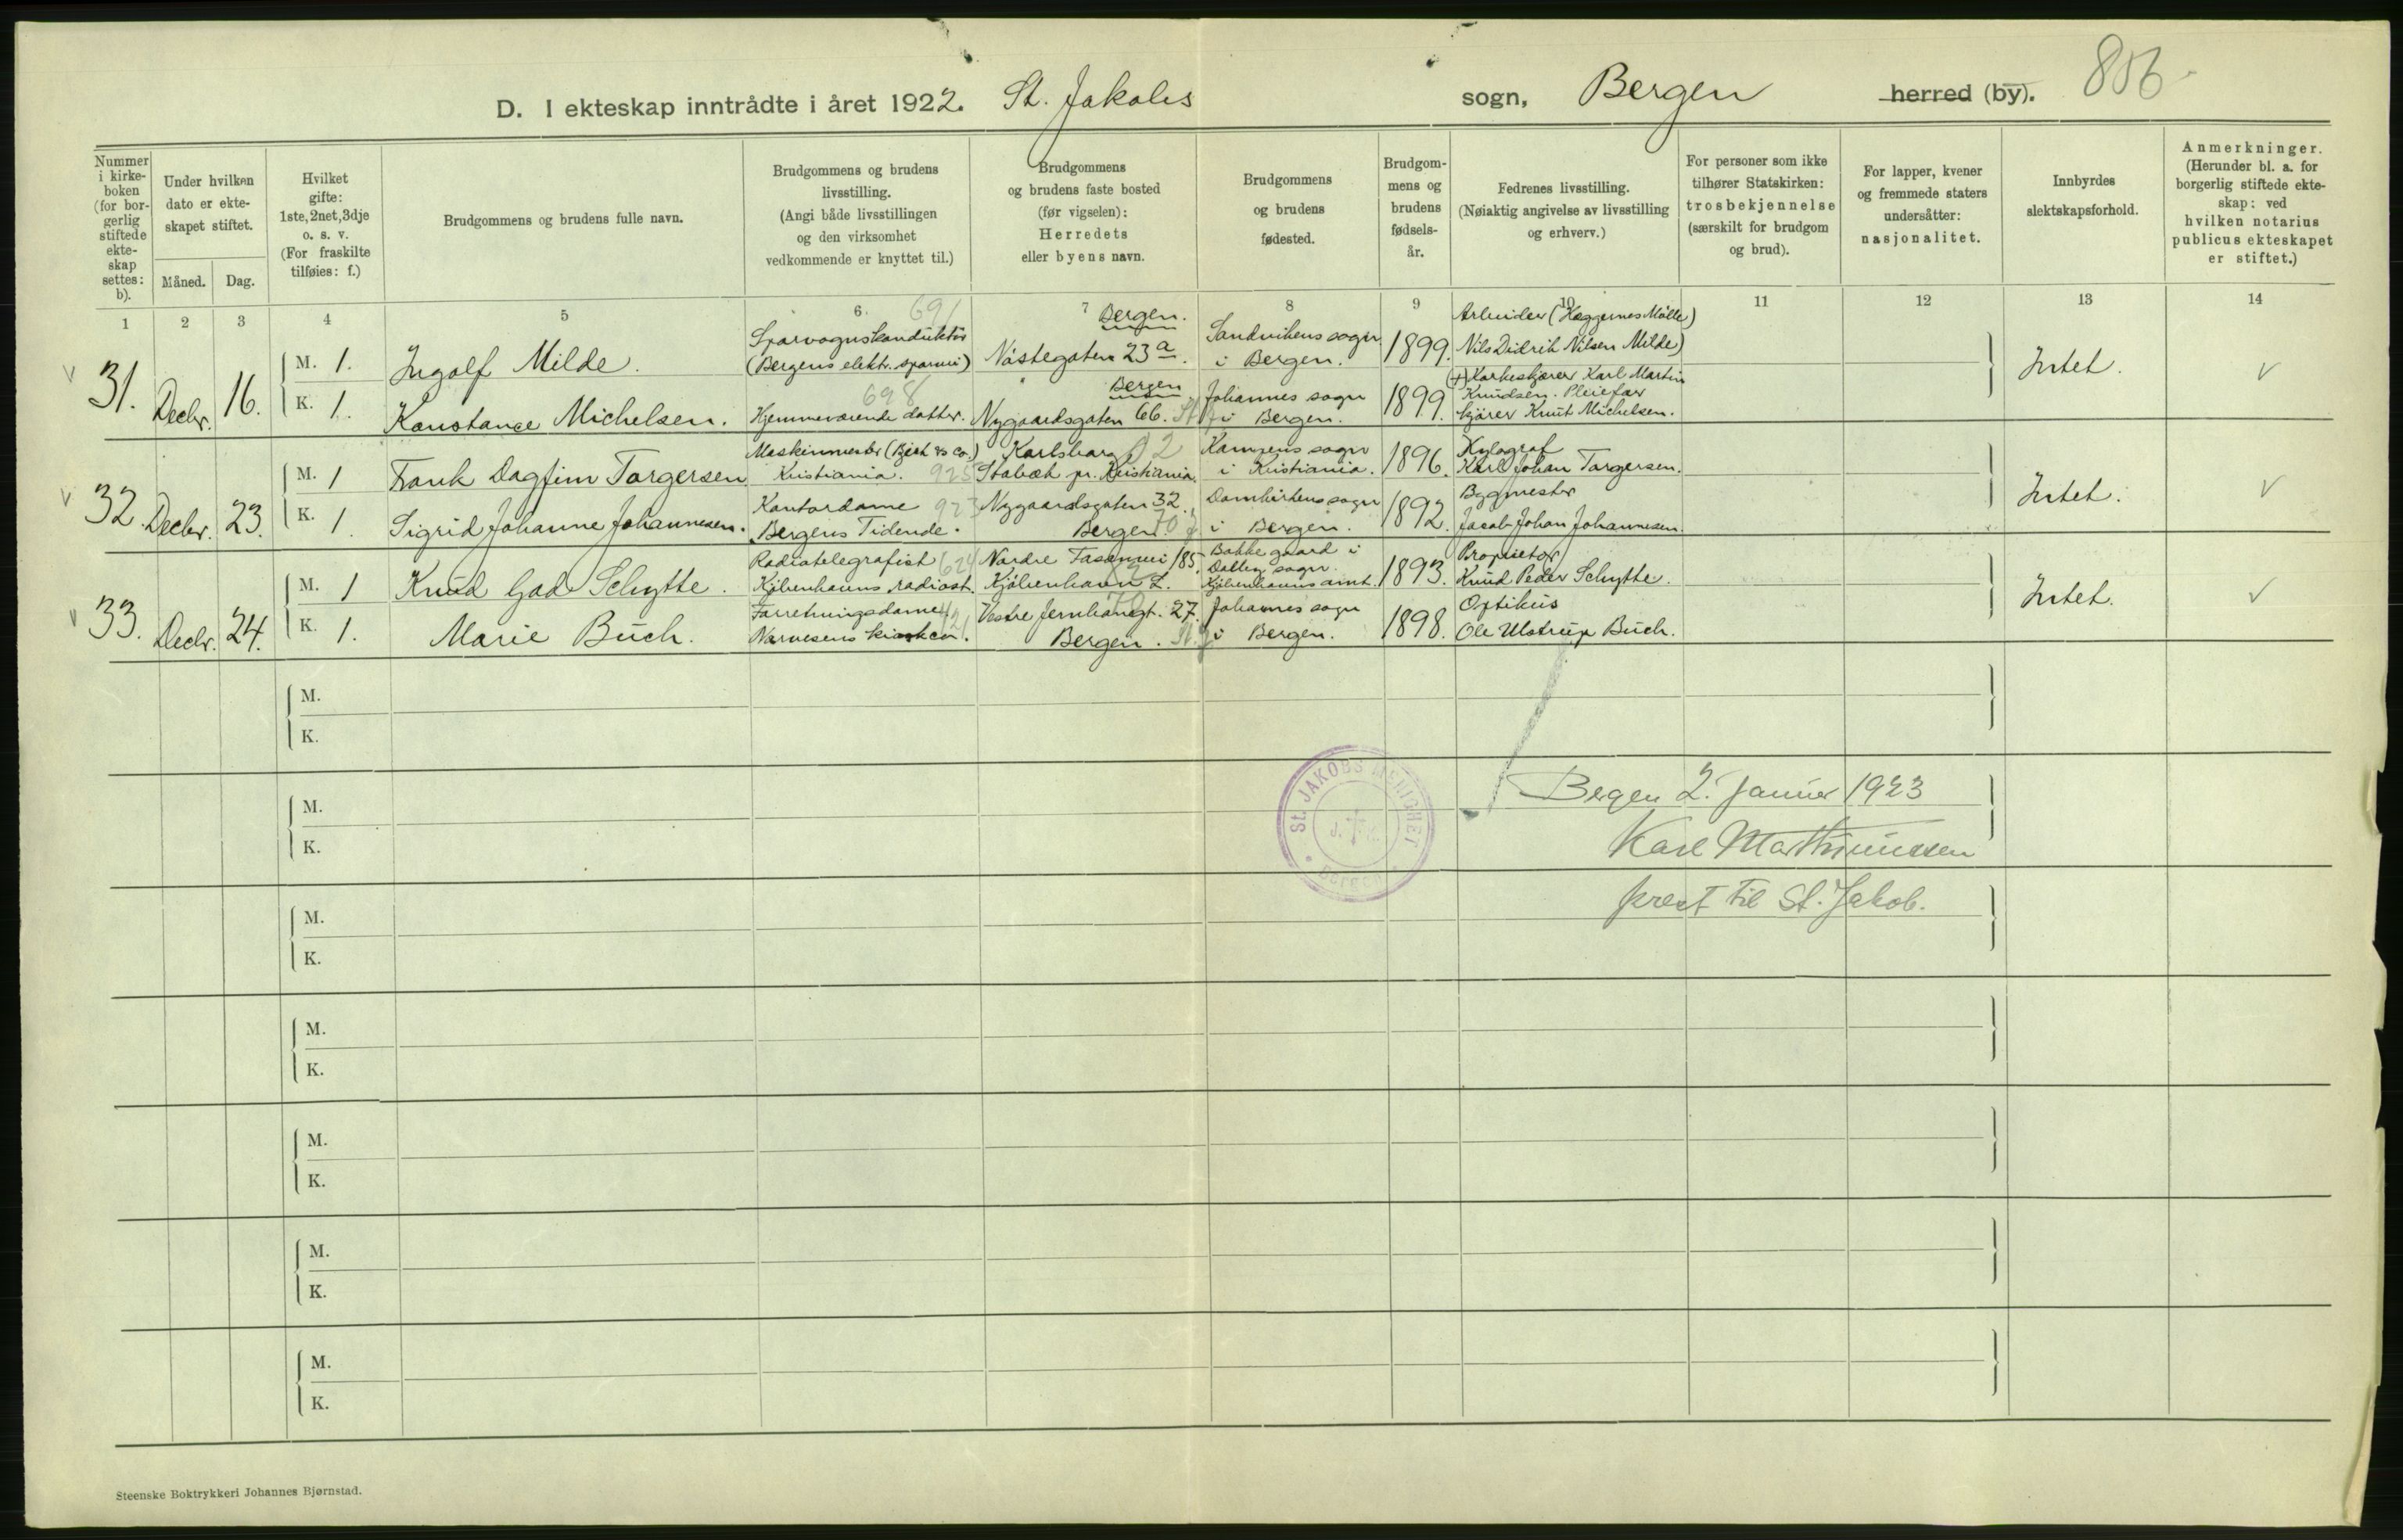 D. I ekteskap inntrådte i året 1922. St. Jakobs sogn, Bergen herred (by). 806
Nummer i kirkeboken (for borgerlig stiftede ekteskap settes: b).
Under hvilken dato er ekteskapet stiftet.
Måned. Dag.
Hvilket gifte: 1ste, 2net, 3dje o. s. v. (For fraskilte tilføies: f.)
Brudgommens og brudens fulle navn.
Brudgommens og brudens livsstilling. (Angi både livsstillingen og den virksomhet vedkommende er knyttet til.)
Brudgommens og brudens faste bosted (før vigselen): Herredets eller byens navn.
Brudgommens og brudens fødested.
Brudgommens og brudens fødselsår.
Fedrenes livsstilling. (Nøiaktig angivelse av livsstilling og erhverv.)
For personer som ikke tilhører Statskirken: trosbekjennelse (særskilt for brudgom og brud).
For lapper, kvener og fremmede staters undersåtter: nasjonalitet.
Innbyrdes slektskapsforhold.
Anmerkninger. (Herunder bl. a. for borgerlig stiftede ekteskap: ved hvilken notarius publicus ekteskapet er stiftet.)
1 2 3 4 5 6 7 8 9 10 11 12 13 14
31. Decbr. 16.
M. 1. Ingolf Milde. Sporvognskonduktör (Bergens elektr. sporvei) 691 Bergen. Nöstegaten 23 a. Sandvikens sogn i Bergen. 1899. Arbeider (Hæggernes Mölle) Nils Didrik Nilsen Milde) Intet. V
K. 1. Konstance Michelsen. 698 Hjemmeværende datter. Bergen Nygaardsgaten 66. St. J. Johannes sogn i Bergen. 1899. (+) Korkeskjærer Karl Martin Knudsen. Pleiefar kjörer Knut Michelsen.
32. Decbr. 23.
M. 1 Frank Dagfinn Torgersen. Maskinmester ( & Co.) Kristiania. 925 Karlsborg 02 Stabæk pr. Kristiania. Kampens sogn i Kristiania. 1896. Xylograf Karl Johan Torgersen. Intet. V
K. 1. Sigrid Johanne Johannesen. Kontordame 923 Bergens Tidende. Nygaardsgaten 32. Bergen. 70 Domkirkens sogn i Bergen. 1892. Bygmester Jacob Johan Johannesen.
33. Decbr. 24.
M. 1 Knud Gad Schytte. Radiotelegrafist 624 Kjöbenhavns radiost. Nordre Fasanvei 185. Kjöbenhavn L. Bakkegaard i sogn. Kjöbenhavns amt. 1893. Proprietær Knud Peder Schytte. Intet. V
K. 1. Marie Buch. Forretningsdame Narvesens kiosken. Vestre Jernbanegt. 27. 70 Bergen. St. J. Johannes sogn i Bergen. 1898. Optikus Ole Ulstrup Buch.
M.
K.
M.
K.
St. JAKOBS MENIGHET
BERGEN
Bergen 2. Januar 1923
Karl Marthinussen
prest til St. Jakob.
M.
K.
M.
K.
M.
K.
M.
K.
M.
K.
Steenske Boktrykkeri Johannes Bjørnstad.